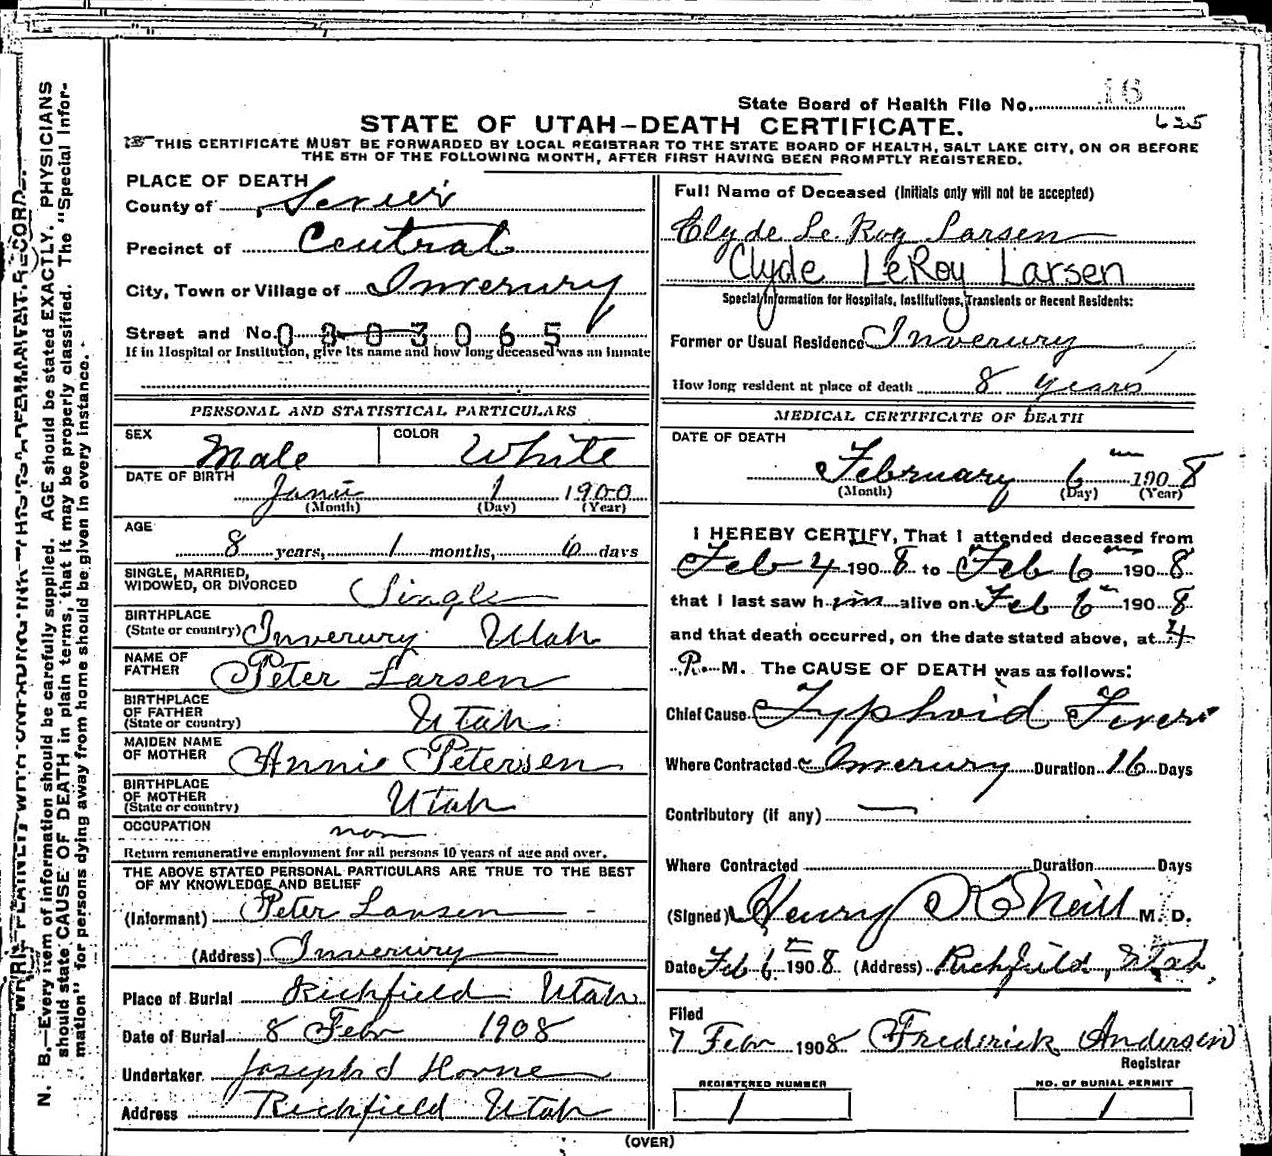 State Board of Health File No. 16
625
STATE OF UTAH-DEATH CERTIFICATE.
THIS CERTIFICATE MUST BE FORWARDED BY LOCAL REGISTRAR TO THE STATE BOARD OF HEALTH, SALT LAKE CITY, ON OR BEFORE
THE 5TH OF THE FOLLOWING MONTH, AFTER FIRST HAVING BEEN PROMPTLY REGISTERED.
N. B.—Every item of information should be carefully supplied. AGE should be stated EXACTLY. PHYSICIANS
should state CAUSE OF DEATH in plain terms, that it may be properly classified. The "Special Infor-
mation" for persons dying away from home should be given in every instance.
PLACE OF DEATH
County of Sevier
Precinct of Central
City, Town or Village of Inverury
Street and No. 0803065
If in Hospital or Institution, give its name and how long deceased was an inmate
PERSONAL AND STATISTICAL PARTICULARS
SEX Male COLOR White
DATE OF BIRTH
Janu 1 1900
(Month) (Day) (Year)
AGE
8 years, 1 months, 6 days
SINGLE, MARRIED,
WIDOWED, OR DIVORCED Single
BIRTHPLACE
(State or country) Inverury Utah
NAME OF
FATHER Peter Larsen
BIRTHPLACE
OF FATHER
(State or country) Utah
MAIDEN NAME
OF MOTHER Annie Petersen
BIRTHPLACE
OF MOTHER
(State or country) Utah
OCCUPATION non
Return remunerative employment for all persons 10 years of age and over.
THE ABOVE STATED PERSONAL PARTICULARS ARE TRUE TO THE BEST
OF MY KNOWLEDGE AND BELIEF
(Informant) Peter Larsen
(Address) Inverury
Place of Burial Richfield Utah
Date of Burial 8 Febr 1908
Undertaker Joseph S Horne
Address Richfield Utah
Full Name of Deceased (Initials only will not be accepted)
Clyde Le Roy Larsen
Clyde LeRoy Larsen
Special Information for Hospitals, Institutions, Transients or Recent Residents:
Former or Usual Residence Inverury
How long resident at place of death 8 years
MEDICAL CERTIFICATE OF DEATH
DATE OF DEATH
February 6 1908
(Month) (Day) (Year)
I HEREBY CERTIFY, That I attended deceased from
Feb 4 1908 to Feb 6 1908
that I last saw him alive on Feb 6 1908
and that death occurred, on the date stated above, at 4
P. M. The CAUSE OF DEATH was as follows:
Chief Cause Typhoid Fever
Where Contracted Inverury Duration 16 Days
Contributory (if any) —
Where Contracted Duration Days
(Signed) Henry K O'Neill M. D.
Date Feb 6 1908 (Address) Richfield, Utah
Filed
7 Febr 1908 Frederick Andersen
Registrar
REGISTERED NUMBER
1
NO. OF BURIAL PERMIT
1
(OVER)